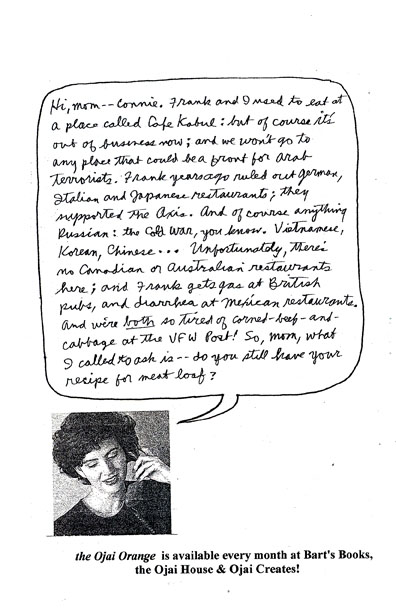 Hi, mom--Connie. Frank and I used to eat at
a place called Cafe Kabul: but of course it's
out of business now; and we won't go to
any place that could be a front for Arab
terrorists. Frank years ago ruled out German,
Italian and Japanese restaurants; they
supported the Axis. And of course anything
Russian: the Cold War, you know. Vietnamese,
Korean, Chinese... Unfortunately, there's
no Canadian or Australian restaurants
here; and Frank gets gas at British
pubs, and diarrhea at Mexican restaurants.
And we're both so tired of corned-beef-and-
cabbage at the VFW Post! So, mom, what
I called to ask is -- do you still have your
recipe for meat loaf?
the Ojai Orange is available every month at Bart's Books,
the Ojai House & Ojai Creates!